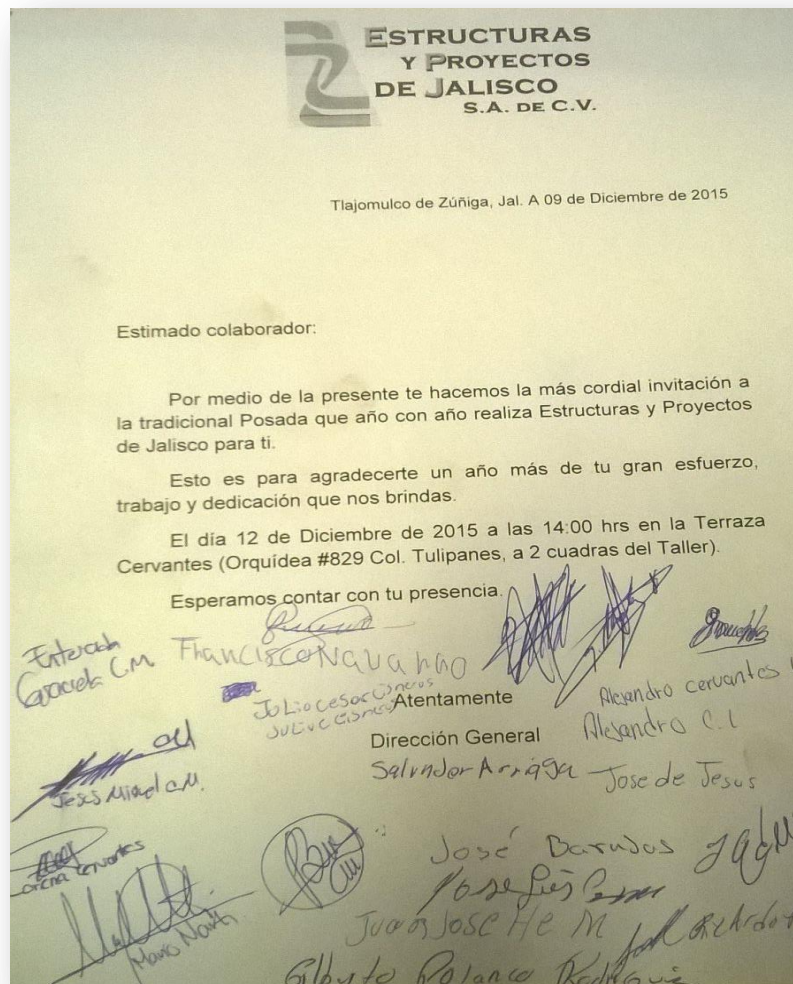 ESTRUCTURAS
Y PROYECTOS
DE JALISCO
S.A. DE C.V.
Tlajomulco de Zúñiga, Jal. A 09 de Diciembre de 2015
Estimado colaborador:
Por medio de la presente te hacemos la más cordial invitación a
la tradicional Posada que año con año realiza Estructuras y Proyectos
de Jalisco para ti.
Esto es para agradecerte un año más de tu gran esfuerzo,
trabajo y dedicación que nos brindas.
El día 12 de Diciembre de 2015 a las 14:00 hrs en la Terraza
Cervantes (Orquídea #829 Col. Tulipanes, a 2 cuadras del Taller).
Esperamos contar con tu presencia.
Enterada
Graciela C.M.
Francisco Navarro
Julio cesar Cisneros
Julio C Cisneros
Atentamente
Alejandro cervantes
Dirección General
Alejandro C.L
Salvador Arriaga
Jose de Jesus
cervantes
José Barajas
Mario
Juan Jose He M
Ricardo
Gilberto Polanco